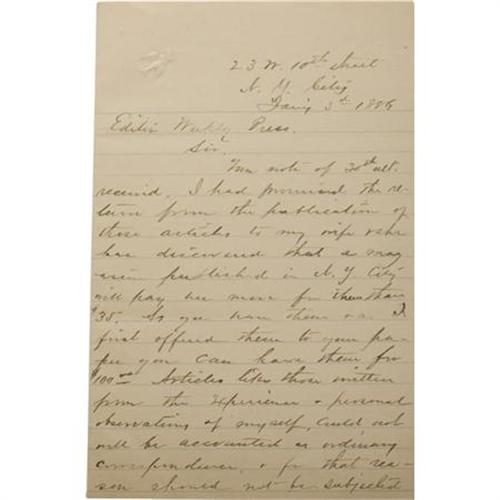 23 W. 10th street
N. Y. City
3th 1886
Editor Weekly Press.
Sir.
Your note of 30th ult.
received. I had promised the re-
turn from the publication of
those articles to my wife who
has discovered that a mag-
azine published in N. Y. City
will pay her more for them than
$35. As you have them & as I
first offered them to your pa-
per you can have them for
$100.00 Articles like those written
from the experience & personal
observations of myself, could not
well be accounted as ordinary
correspondence, & for that rea-
son should not be subjected